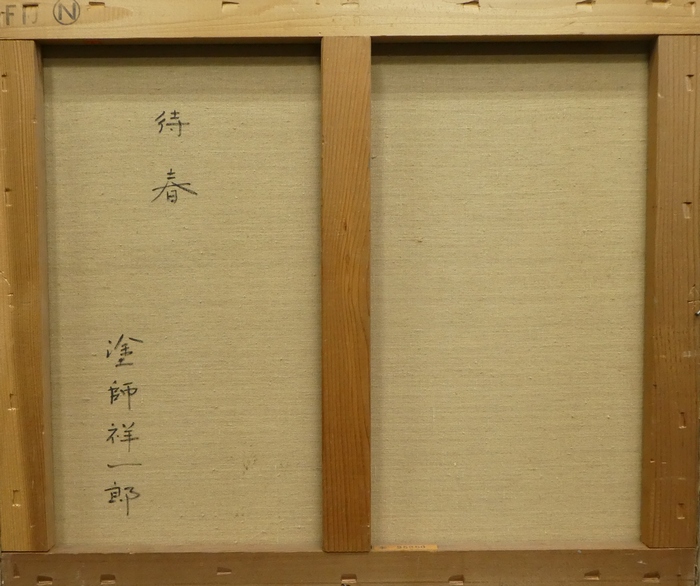 待春
塗師祥一郎
N